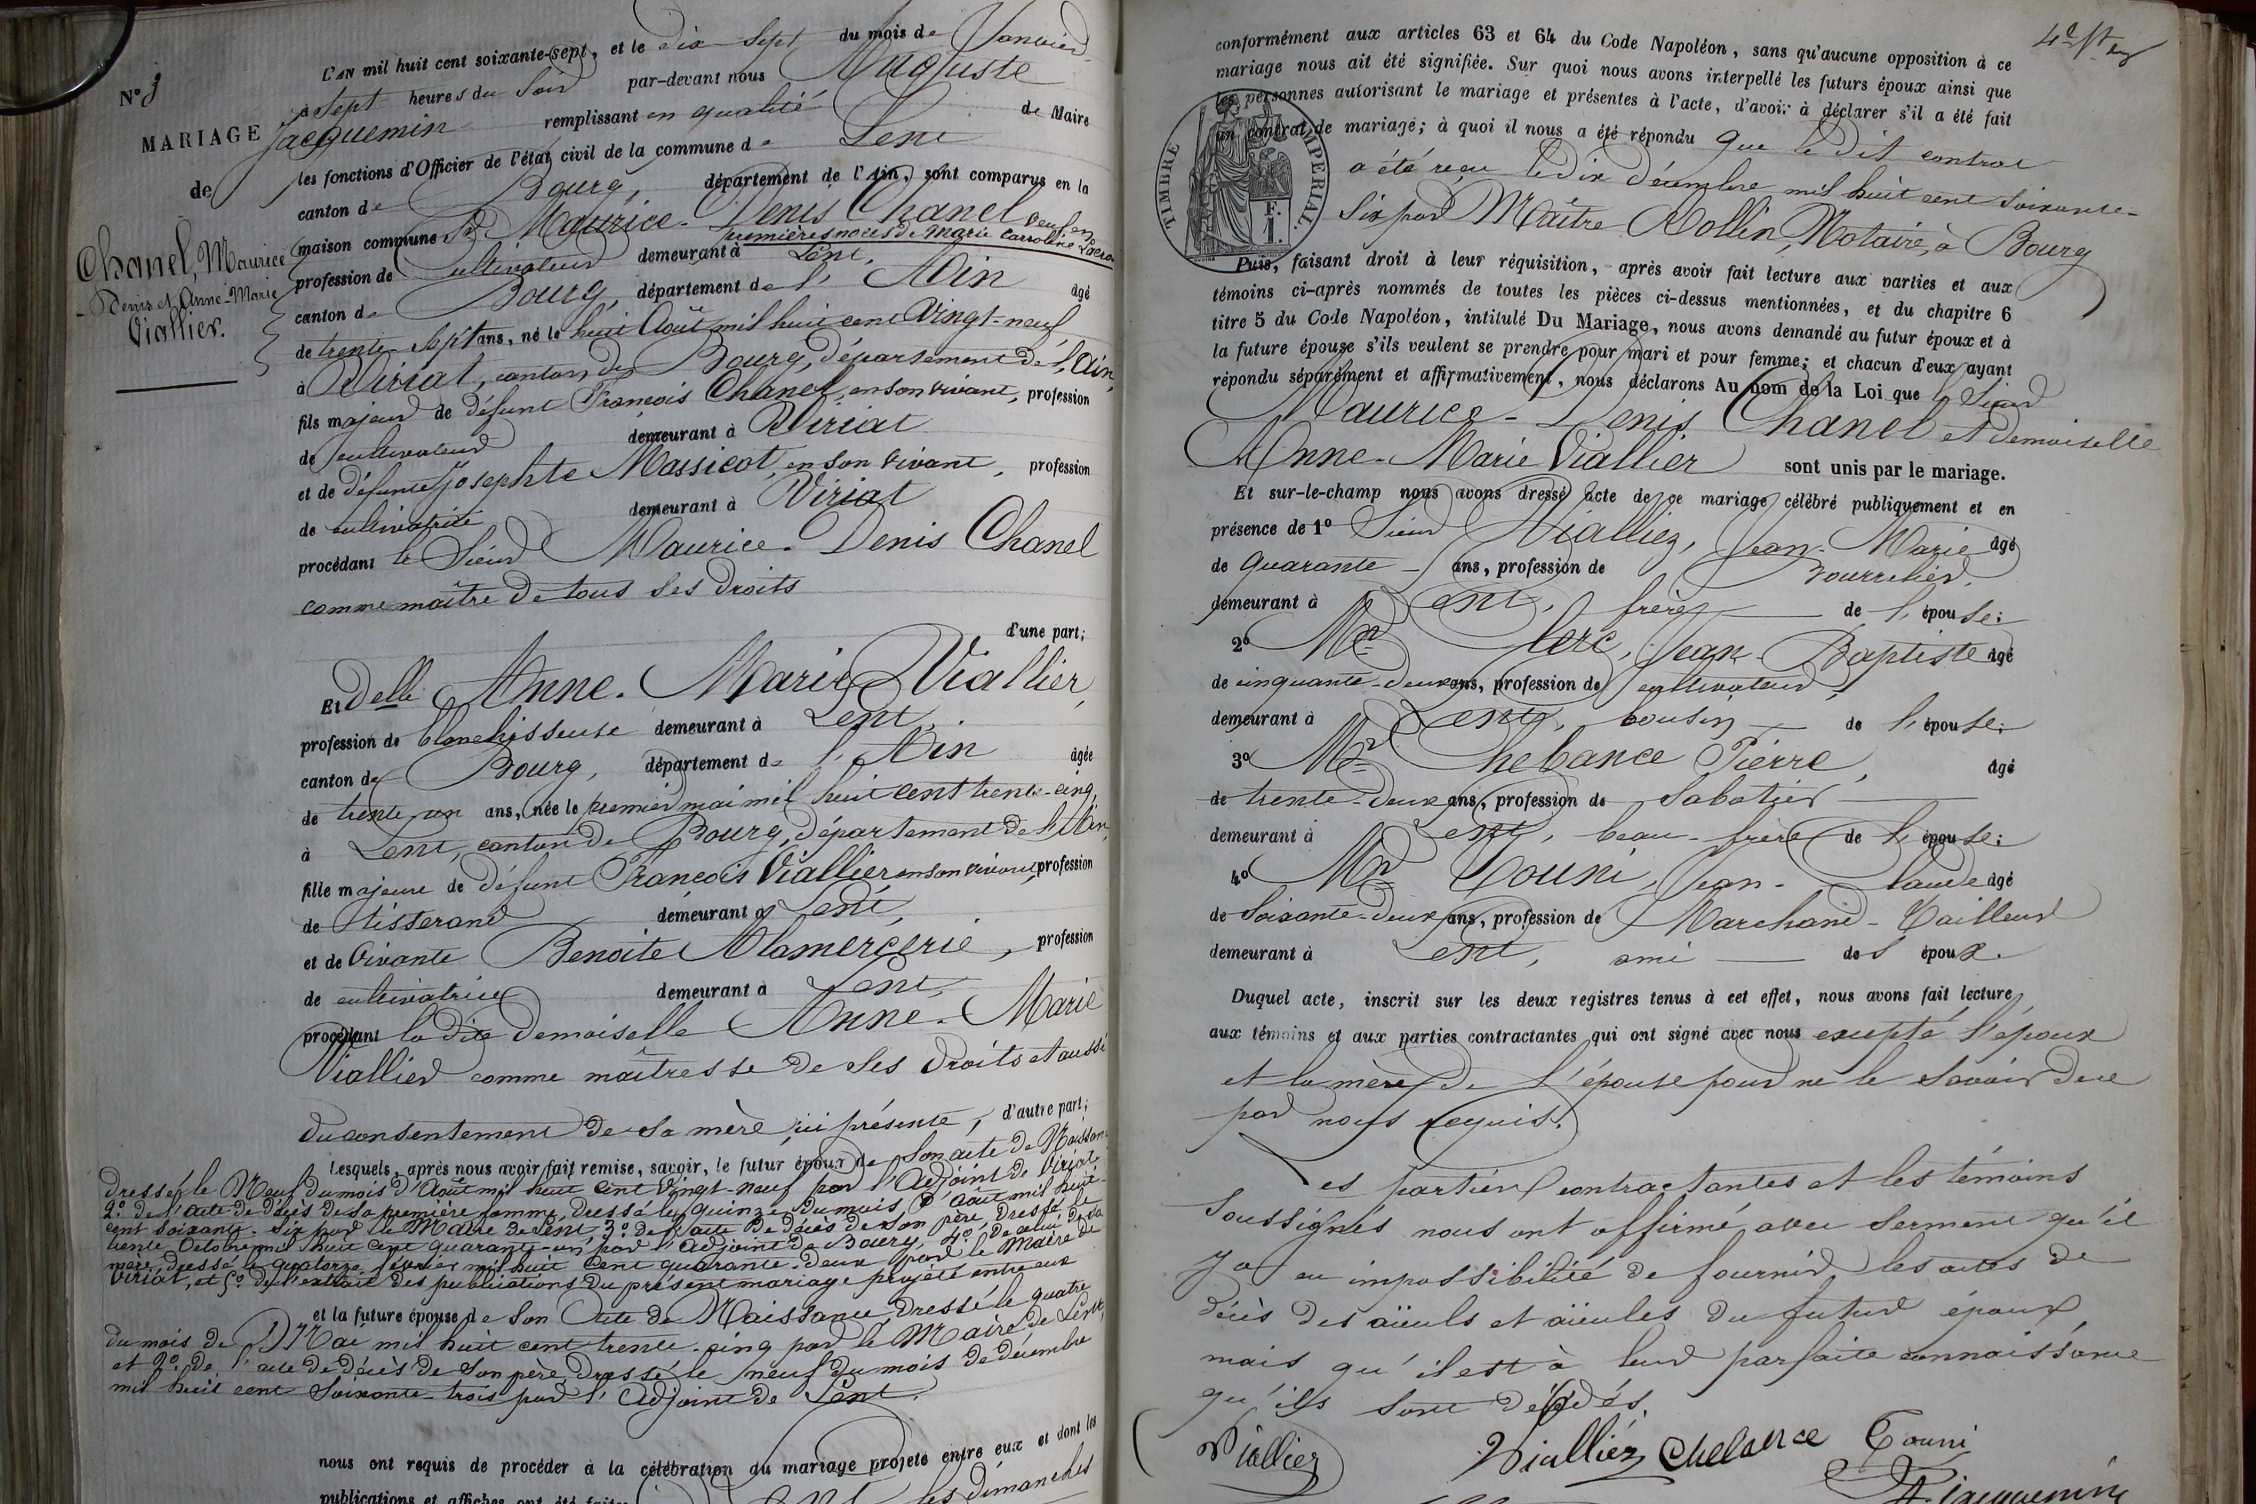 N° 3
MARIAGE
de
Chanel, Maurice
-Denis et Anne-Marie
Viallier.
L'AN mil huit cent soixante-sept, et le dix sept du mois de Janvier
à sept heures du Soir par-devant nous Auguste
Jacquemin remplissant en qualité de Maire
les fonctions d'Officier de l'état civil de la commune de Lent
canton de Bourg, département de l'Ain, sont comparus en la
maison commune Sr Maurice-Denis Chanel veuf en
premières noces de Marie Caroline
profession de Cultivateur demeurant à Lent,
canton de Bourg, département de l'Ain âgé
de trente-sept ans, né le huit Août mil huit cent vingt-neuf
à Viriat, canton de Bourg, département de l'Ain,
fils majeur de défunt François Chanel, en son vivant, profession
de cultivateur demeurant à Viriat
et de défunte Josephte Massicot, en son vivant, profession
de cultivatrice demeurant à Viriat
procédant le Sieur Maurice-Denis Chanel
comme maître de tous ses droits
d'une part;
Et Delle Anne-Marie Viallier,
profession de blanchisseuse demeurant à Lent,
canton de Bourg, département de l'Ain âgée
de trente un ans, née le premier mai mil huit cent trente-cinq,
à Lent, canton de Bourg, département de l'Ain,
fille majeure de défunt François Viallier en son vivant, profession
de tisserand demeurant à Lent,
et de vivante Benoite Alamercerie, profession
de cultivatrice demeurant à Lent,
procédant la dite demoiselle Anne-Marie
Viallier comme maîtresse de ses droits et aussi
du consentement de sa mère, ici présente, d'autre part;
Lesquels, après nous avoir fait remise, savoir, le futur époux de son acte de Naissance
dressé le Neuf du mois d'Août mil huit cent vingt-neuf par l'adjoint de Viriat
2° de l'acte de décès de sa première femme, dressé le quinze du mois d'août mil huit-
cent soixante-six par le Maire de Lent, 3° de l'acte de décès de son père, dressé le
trente Octobre mil huit cent quarante-un par l'adjoint de Bourg, 4° de celui de sa
mère, dressé le quatorze février mil huit cent quarante-deux par le Maire de
Viriat, et 5° de l'extrait des publications du présent mariage projeté entre eux
et la future épouse de son Acte de Naissance, dressé le quatre
du mois de Mai mil huit cent trente-cinq par le Maire de Lent,
et 2° de l'acte de décès de son père, dressé le neuf du mois de décembre
mil huit cent soixante-trois par l'adjoint de Lent.
nous ont requis de procéder à la célébration du mariage projeté entre eux et dont les
publications et affiches ont été faites les dimanches
conformément aux articles 63 et 64 du Code Napoléon, sans qu'aucune opposition à ce
mariage nous ait été signifiée. Sur quoi nous avons interpellé les futurs époux ainsi que
les personnes autorisant le mariage et présentes à l'acte, d'avoir à déclarer s'il a été fait
un contrat de mariage; à quoi il nous a été répondu que le dit contrat
TIMBRE IMPERIAL
F.
1.
a été reçu le dix décembre mil huit cent soixante-
six par Maître Rollin, Notaire, à Bourg
Puis, faisant droit à leur réquisition, après avoir fait lecture aux parties et aux
témoins ci-après nommés de toutes les pièces ci-dessus mentionnées, et du chapitre 6
titre 5 du Code Napoléon, intitulé Du Mariage, nous avons demandé au futur époux et à
la future épouse s'ils veulent se prendre pour mari et pour femme; et chacun d'eux ayant
répondu séparément et affirmativement, nous déclarons Au nom de la Loi que le Sieur
Maurice-Denis Chanel et demoiselle
Anne-Marie Viallier sont unis par le mariage.
Et sur-le-champ nous avons dressé acte de ce mariage célébré publiquement et en
présence de 1° Sieur Viallier, Jean-Marie âgé
de quarante ans, profession de Bourrelier,
demeurant à Lent, frère de l'épouse;
2° Mr Clerc, Jean-Baptiste âgé
de cinquante-deux ans, profession de cultivateur,
demeurant à Lent, cousin de l'épouse;
3° Mr Chebance Pierre, âgé
de trente-deux ans, profession de Sabotier
demeurant à Lent, beau-frère de l'épouse;
4° Mr Couni, Jean-Claude âgé
de soixante-deux ans, profession de Marchand-Tailleur
demeurant à Lent, ami de l'époux.
Duquel acte, inscrit sur les deux registres tenus à cet effet, nous avons fait lecture
aux témoins et aux parties contractantes qui ont signé avec nous excepté l'époux
et la mère de l'épouse pour ne le savoir de ce
par nous requis.
Les parties contractantes et les témoins
soussignés nous ont affirmé avec serment qu'il
y a eu impossibilité de fournir les actes de
décès des aïeuls et aïeules du futur époux,
mais qu'il est à leur parfaite connaissance
qu'ils sont décédés.
Viallier Viallier Chebance Couni
A. Jacquemin